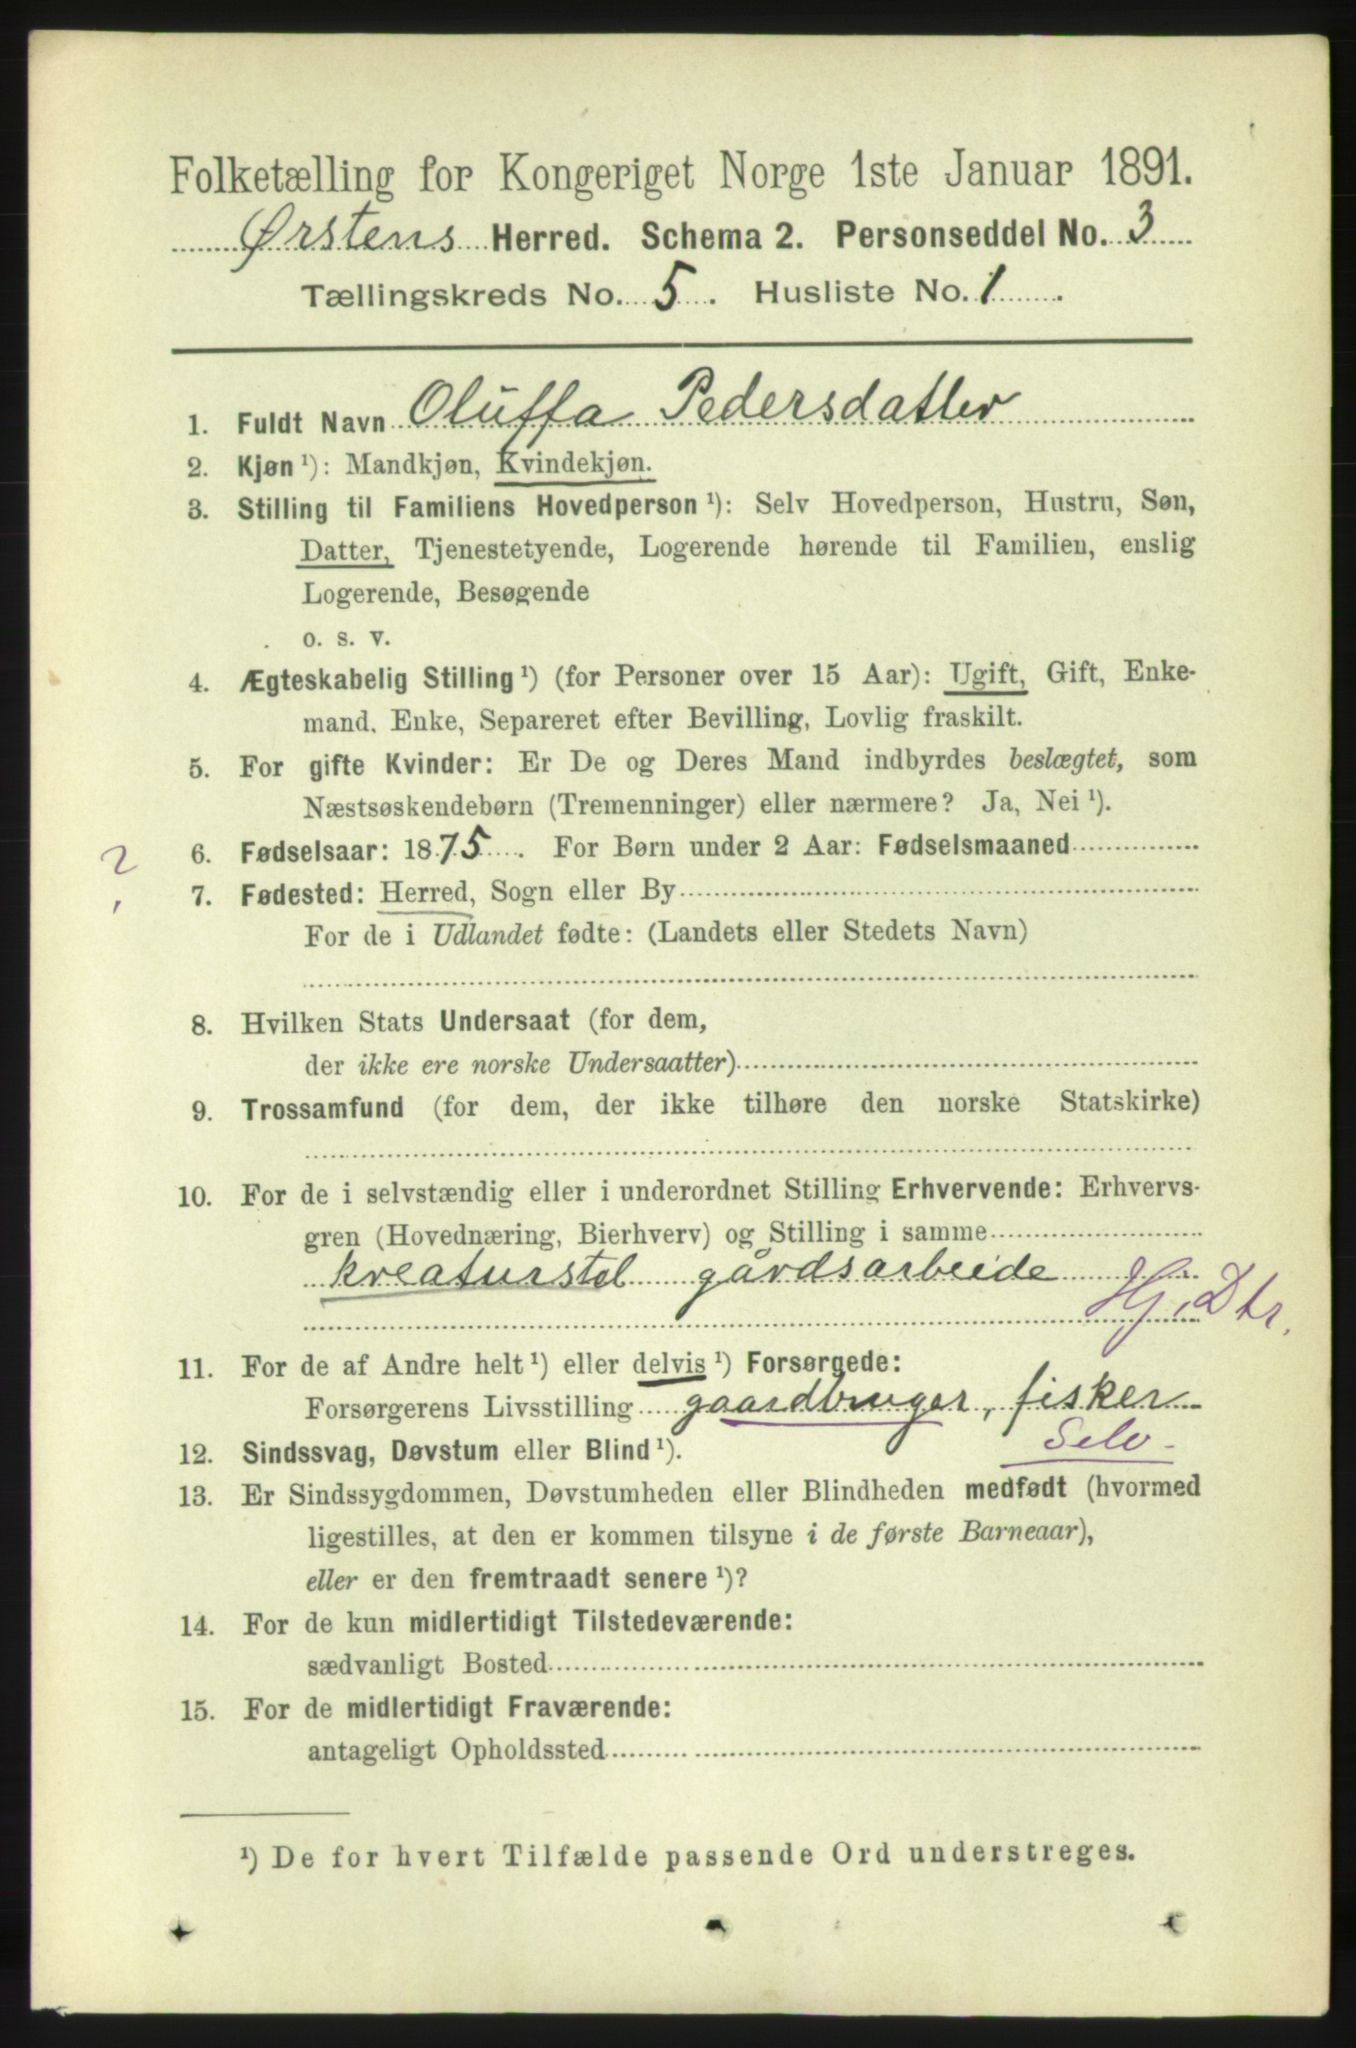 Folketælling for Kongeriget Norge 1ste Januar 1891.
Ørstens Herred. Schema 2. Personseddel No. 3
Tællingskreds No. 5. Husliste No. 1.
1. Fuldt Navn Oluffa Pedersdatter
2. Kjøn ¹): Mandkjøn, Kvindekjøn.
3. Stilling til Familiens Hovedperson ¹): Selv Hovedperson, Hustru, Søn,
Datter, Tjenestetyende, Logerende hørende til Familien, enslig
Logerende, Besøgende
o. s. v.
4. Ægteskabelig Stilling ¹) (for Personer over 15 Aar): Ugift, Gift, Enke-
mand, Enke, Separeret efter Bevilling, Lovlig fraskilt.
5. For gifte Kvinder: Er De og Deres Mand indbyrdes beslægtet, som
Næstsøskendebørn (Tremenninger) eller nærmere? Ja, Nei ¹).
? 6. Fødselsaar: 1875. For Børn under 2 Aar: Fødselsmaaned
7. Fødested: Herred, Sogn eller By
For de i Udlandet fødte: (Landets eller Stedets Navn)
8. Hvilken Stats Undersaat (for dem,
der ikke ere norske Undersaatter)
9. Trossamfund (for dem, der ikke tilhøre den norske Statskirke)
10. For de i selvstændig eller i underordnet Stilling Erhvervende: Erhvervs-
gren (Hovednæring, Bierhverv) og Stilling i samme
kreaturstel gårdsarbeide
Hj. Dtr.
11. For de af Andre helt ¹) eller delvis ¹) Forsørgede:
Forsørgerens Livsstilling gaardbruger, fisker
Selv
12. Sindssvag, Døvstum eller Blind ¹).
13. Er Sindssygdommen, Døvstumheden eller Blindheden medfødt (hvormed
ligestilles, at den er kommen tilsyne i de første Barneaar),
eller er den fremtraadt senere ¹)?
14. For de kun midlertidigt Tilstedeværende:
sædvanligt Bosted
15. For de midlertidigt Fraværende:
antageligt Opholdssted
¹) De for hvert Tilfælde passende Ord understreges.